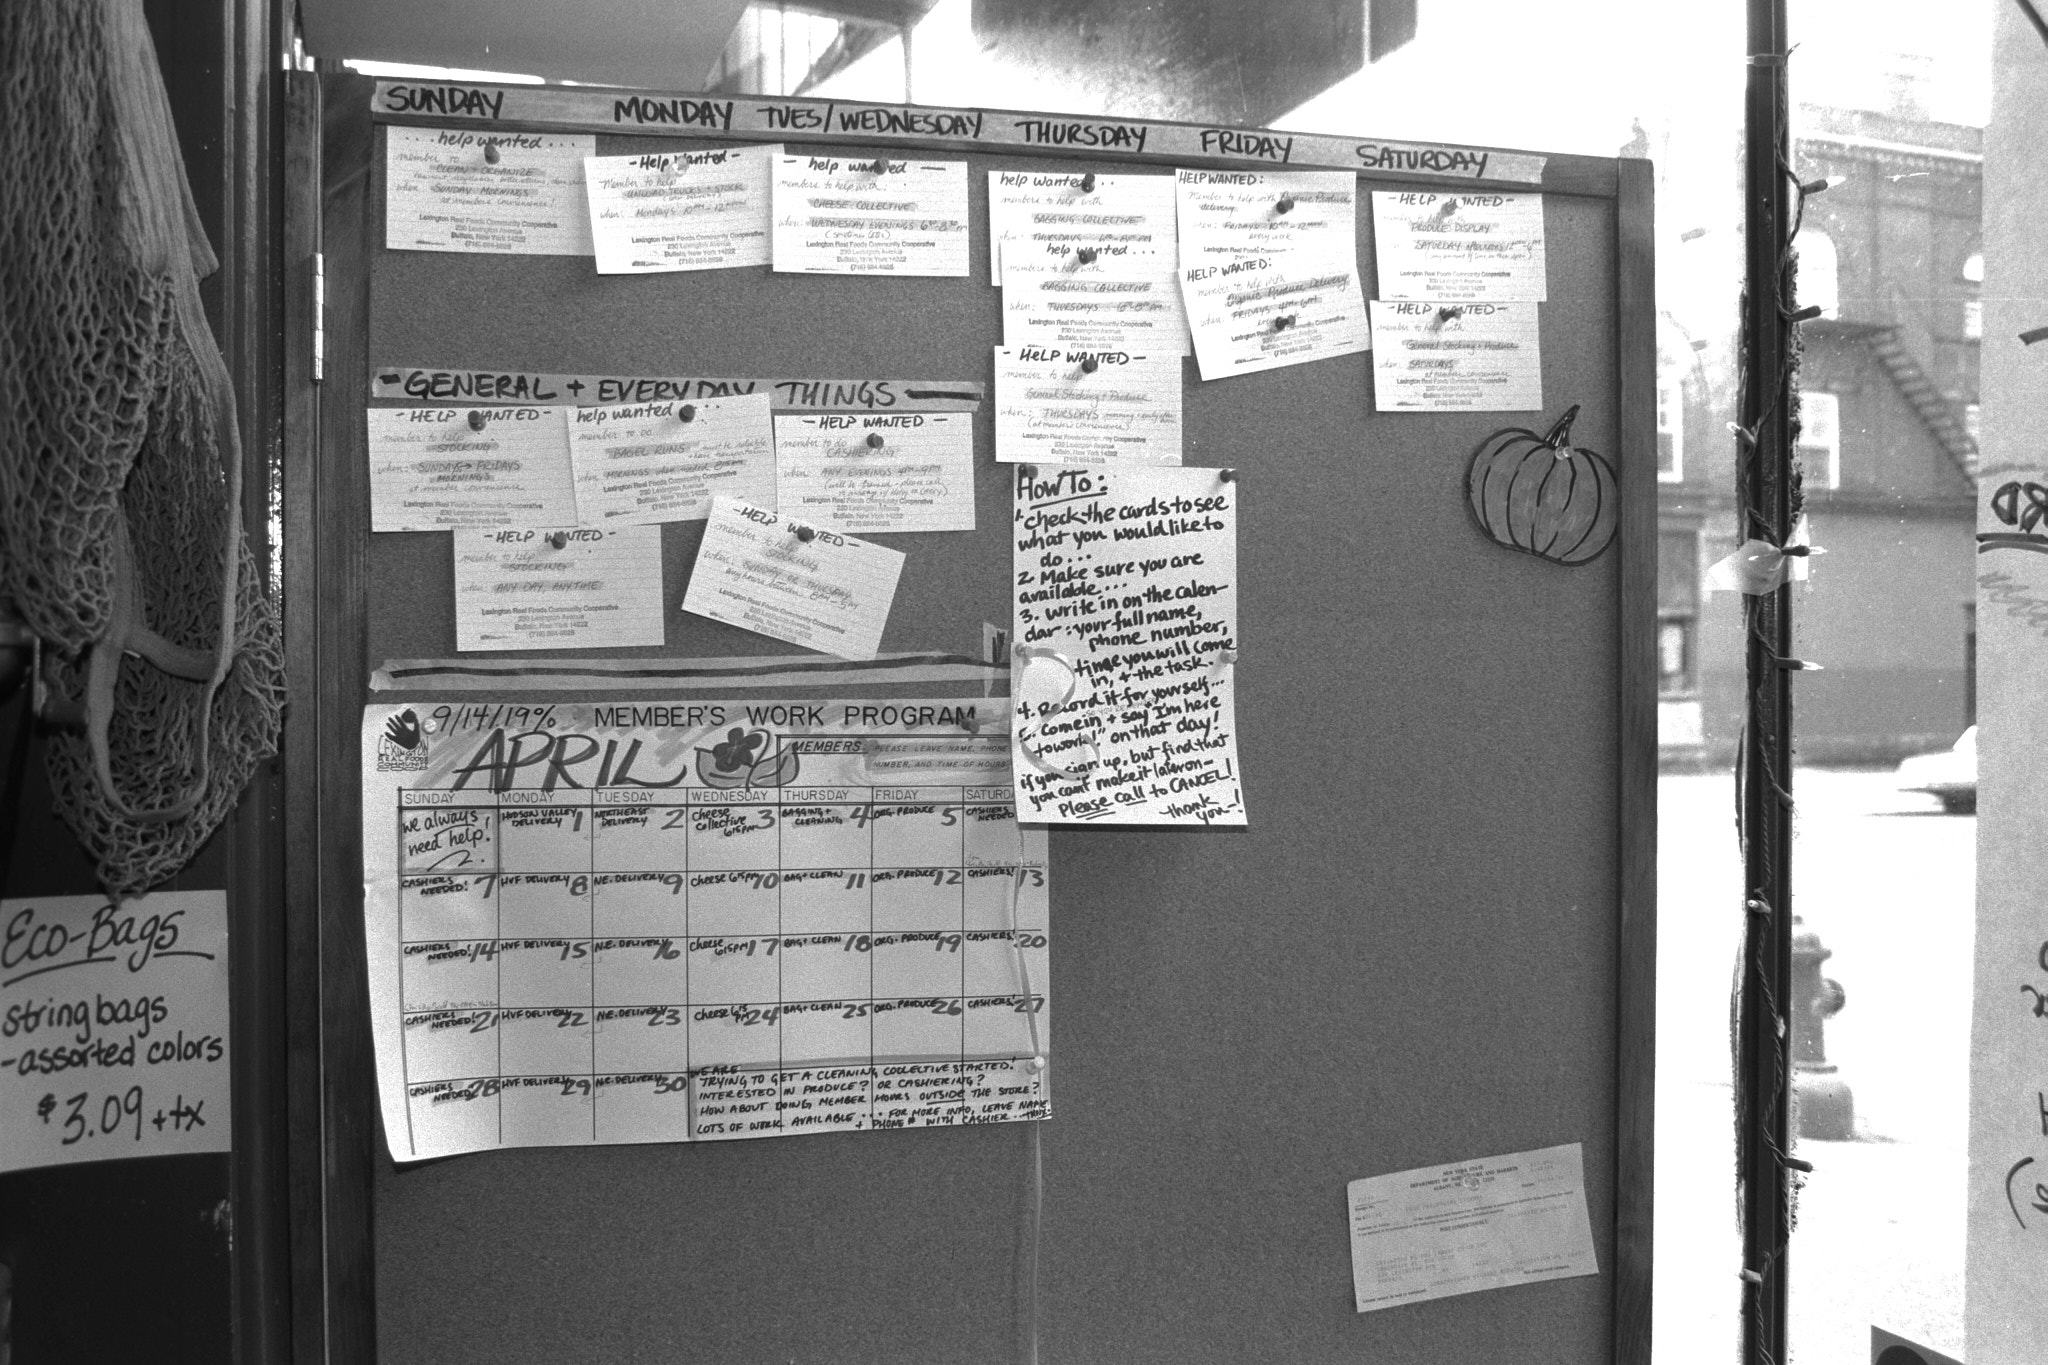 SUNDAY
MONDAY
TUES/WEDNESDAY
THURSDAY
FRIDAY
SATURDAY
...help wanted...
member to
CLEAN + ORGANIZE
when: SUNDAY MORNINGS
at members convenience!
Lexington Real Foods Community Cooperative
230 Lexington Avenue
Buffalo, New York 14222
-Help Wanted-
Member to help
UNLOAD TRUCKS + STOCK
when: Mondays 10AM-12
Lexington Real Foods Community Cooperative
230 Lexington Avenue
Buffalo, New York 14222
- help wanted -
members to help with:
CHEESE COLLECTIVE
when: WEDNESDAY EVENINGS
Lexington Real Foods Community Cooperative
230 Lexington Avenue
Buffalo, New York 14222
help wanted...
members to help with
BAGGING COLLECTIVE
when: THURSDAYS
help wanted...
members to help with
BAGGING COLLECTIVE
when: THURSDAYS
Lexington Real Foods Community Cooperative
230 Lexington Avenue
Buffalo, New York 14222
- HELP WANTED -
member to help
General Stocking + Produce
when: THURSDAYS
(at members convenience)
Lexington Real Foods Community Cooperative
230 Lexington Avenue
Buffalo, New York 14222
HELP WANTED:
Member to help with Organic Produce
delivery.
when: FRIDAYS 10AM-12
every week
HELP WANTED:
member to help with
Organic Produce Delivery
when: FRIDAYS 4PM-6PM
- HELP WANTED -
PRODUCE DISPLAY
SATURDAY
Lexington Real Foods Community Cooperative
230 Lexington Avenue
Buffalo, New York 14222
- HELP WANTED -
members to help with
General Stocking + Produce
when: SATURDAYS
at member convenience
Lexington Real Foods Community Cooperative
230 Lexington Avenue
Buffalo, New York 14222
- GENERAL + EVERYDAY THINGS -
- HELP WANTED -
member to help
STOCKING
when: SUNDAY → FRIDAYS
MORNINGS
at member convenience
Lexington Real Foods Community Cooperative
230 Lexington Avenue
Buffalo, New York 14222
help wanted...
member to do
BAGEL RUNS
when: MORNINGS when needed
Lexington Real Foods Community Cooperative
230 Lexington Avenue
Buffalo, New York 14222
- HELP WANTED -
member to do
CASHIERING
when: ANY EVENINGS 4PM-9PM
Lexington Real Foods Community Cooperative
230 Lexington Avenue
Buffalo, New York 14222
- HELP WANTED -
member to help
STOCKING
when: ANY DAY, ANYTIME
Lexington Real Foods Community Cooperative
230 Lexington Avenue
Buffalo, New York 14222
- HELP WANTED -
member to help
STOCKING
when: SUNDAY OR THURSDAY
Lexington Real Foods Community Cooperative
230 Lexington Avenue
Buffalo, New York 14222
How To:
1. check the cards to see
what you would like to
do...
2. Make sure you are
available...
3. write in on the calen-
dar: your full name,
phone number,
time you will come
in, + the task.
4. Record it for yourself...
5. Come in + say "I'm here
to work!" on that day!
if you sign up, but find that
you can't make it later on-
Please call to CANCEL!
thank
you-!
9/14/19% MEMBER'S WORK PROGRAM
LEXINGTON
REAL FOODS
COMMUNITY
APRIL
MEMBERS: PLEASE LEAVE NAME, PHONE
NUMBER, AND TIME OF HOURS
SUNDAY MONDAY TUESDAY WEDNESDAY THURSDAY FRIDAY SATURDAY
we always need help!
HUDSON VALLEY DELIVERY 1
NORTHEAST DELIVERY 2
cheese collective 615PM 3
BAGGING + CLEANING 4
ORG. PRODUCE 5
CASHIERS NEEDED
CASHIERS NEEDED! 7
HVF DELIVERY 8
N.E. DELIVERY 9
Cheese 615PM 10
BAG + CLEAN 11
ORG. PRODUCE 12
CASHIERS! 13
CASHIERS NEEDED! 14
HVF DELIVERY 15
N.E. DELIVERY 16
Cheese 615PM 17
BAG + CLEAN 18
ORG. PRODUCE 19
CASHIERS! 20
CASHIERS NEEDED! 21
HVF DELIVERY 22
N.E. DELIVERY 23
Cheese 615 PM 24
BAG + CLEAN 25
ORG. PRODUCE 26
CASHIERS! 27
CASHIERS NEEDED! 28
HVF DELIVERY 29
N.E. DELIVERY 30
WE ARE
TRYING TO GET A CLEANING COLLECTIVE STARTED!
INTERESTED IN PRODUCE? OR CASHIERING?
HOW ABOUT DOING MEMBER HOURS OUTSIDE THE STORE?
LOTS OF WORK AVAILABLE... FOR MORE INFO, LEAVE NAME
+ PHONE # WITH CASHIER
Eco-Bags
string bags
-assorted colors
$3.09 + tx
NEW YORK STATE
DEPARTMENT OF AGRICULTURE AND MARKETS